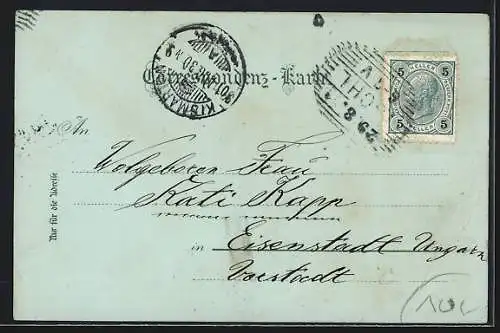 Correspondenz-Karte
KISMAR
5 5
5 5
29 8.
An
Wolgeboren Frau
Kati Kapp
in Eisenstadt Ungarn
Vorstadt
Nur für die Adresse